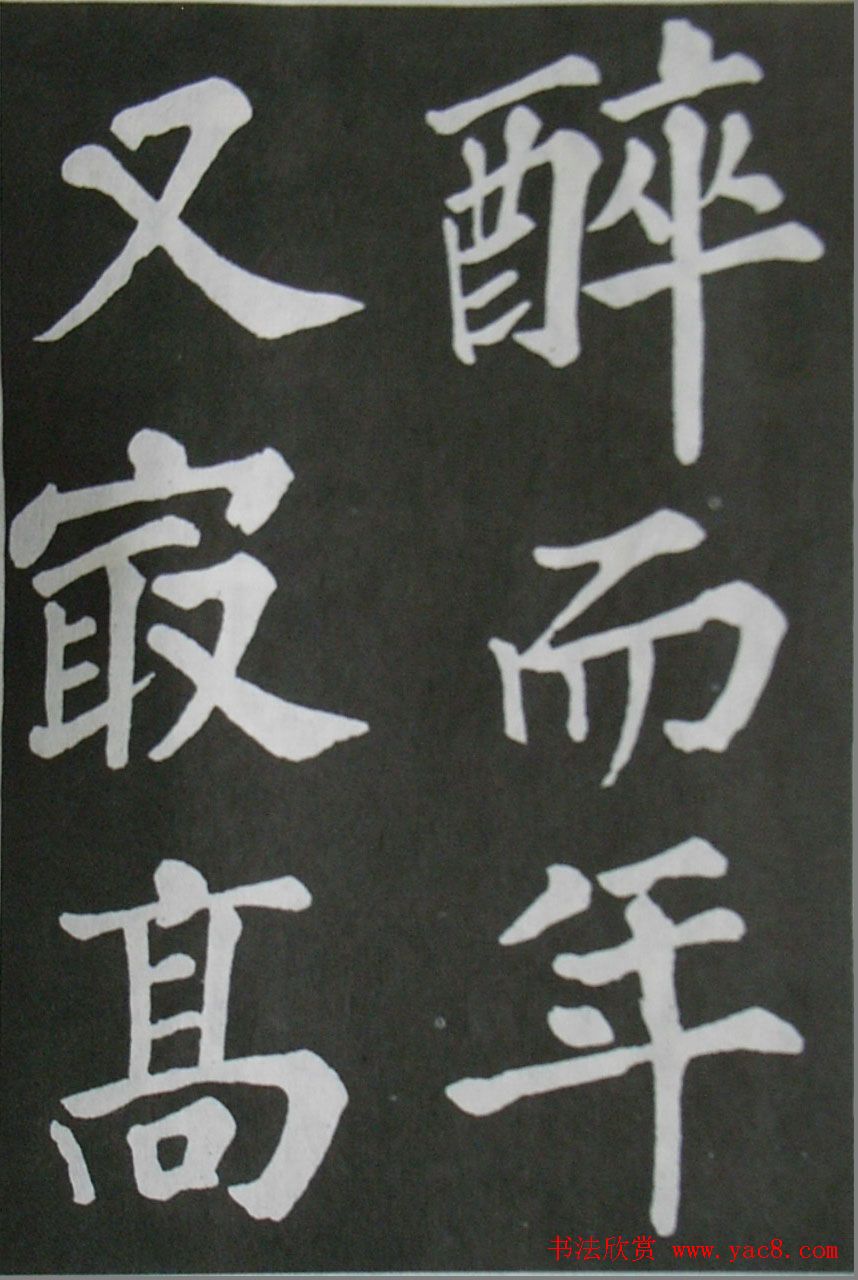 醉而年
又冣高
书法欣赏 www.yac8.com